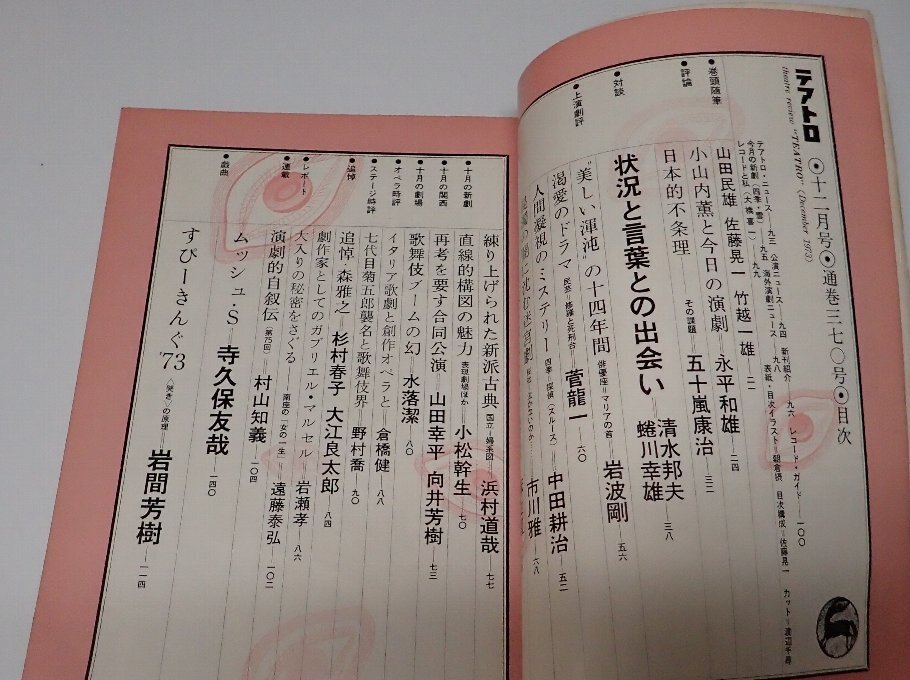 テアトロ
theatre review "TEATRO" (December 1973)
◉十二月号◉通巻三七〇号◉目次
テアトロ・ニュース—九三 公演ニュース—九四 新刊紹介—九六 レコード・ガイド—一〇〇
今月の新劇(四季・雪)—九五 海外演劇ニュース—九八 表紙・目次イラスト=朝倉摂 目次構成=佐藤晃一 カット=渡辺千尋
レコードと私(大橋喜一)—九九
●巻頭随筆
山田民雄 佐藤晃一 竹越一雄—二一
●評論
小山内薫と今日の演劇=永平和雄—二四
日本的不条理 その課題=五十嵐康治—三二
●対談
状況と言葉との出会い=清水邦夫 蜷川幸雄—三八
●上演劇評
"美しい渾沌"の十四年間 俳優座=マリアの首=岩波剛—五六
渇愛のドラマ 民芸=修羅と死刑台=菅龍一—六〇
人間凝視のミステリー 四季=探偵(スルース)=中田耕治—五二
市川雅—六八
●十月の新劇
練り上げられた新派古典 国立=婦系図=浜村道哉—七七
直線的構図の魅力 表現劇場ほか=小松幹生—七〇
●十月の関西
再考を要す合同公演=山田幸平 向井芳樹—七三
●十月の劇場
歌舞伎ブームの幻=水落潔—八〇
●オペラ時評
イタリア歌劇と創作オペラと=倉橋健—八八
●ステージ時評
七代目菊五郎襲名と歌舞伎界=野村喬—九〇
●追悼
追悼・森雅之=杉村春子 大江良太郎—八四
劇作家としてのガブリエル・マルセル=岩瀬孝—八六
●レポート
大入りの秘密をさぐる 南座の「女の一生」=遠藤泰弘—一〇二
●連載
演劇的自叙伝(第75回)=村山知義—一〇四
●戯曲
ムッシュ・S=寺久保友哉—一四〇
すぴーきんぐ'73 〈哭き〉の原理=岩間芳樹—一一四